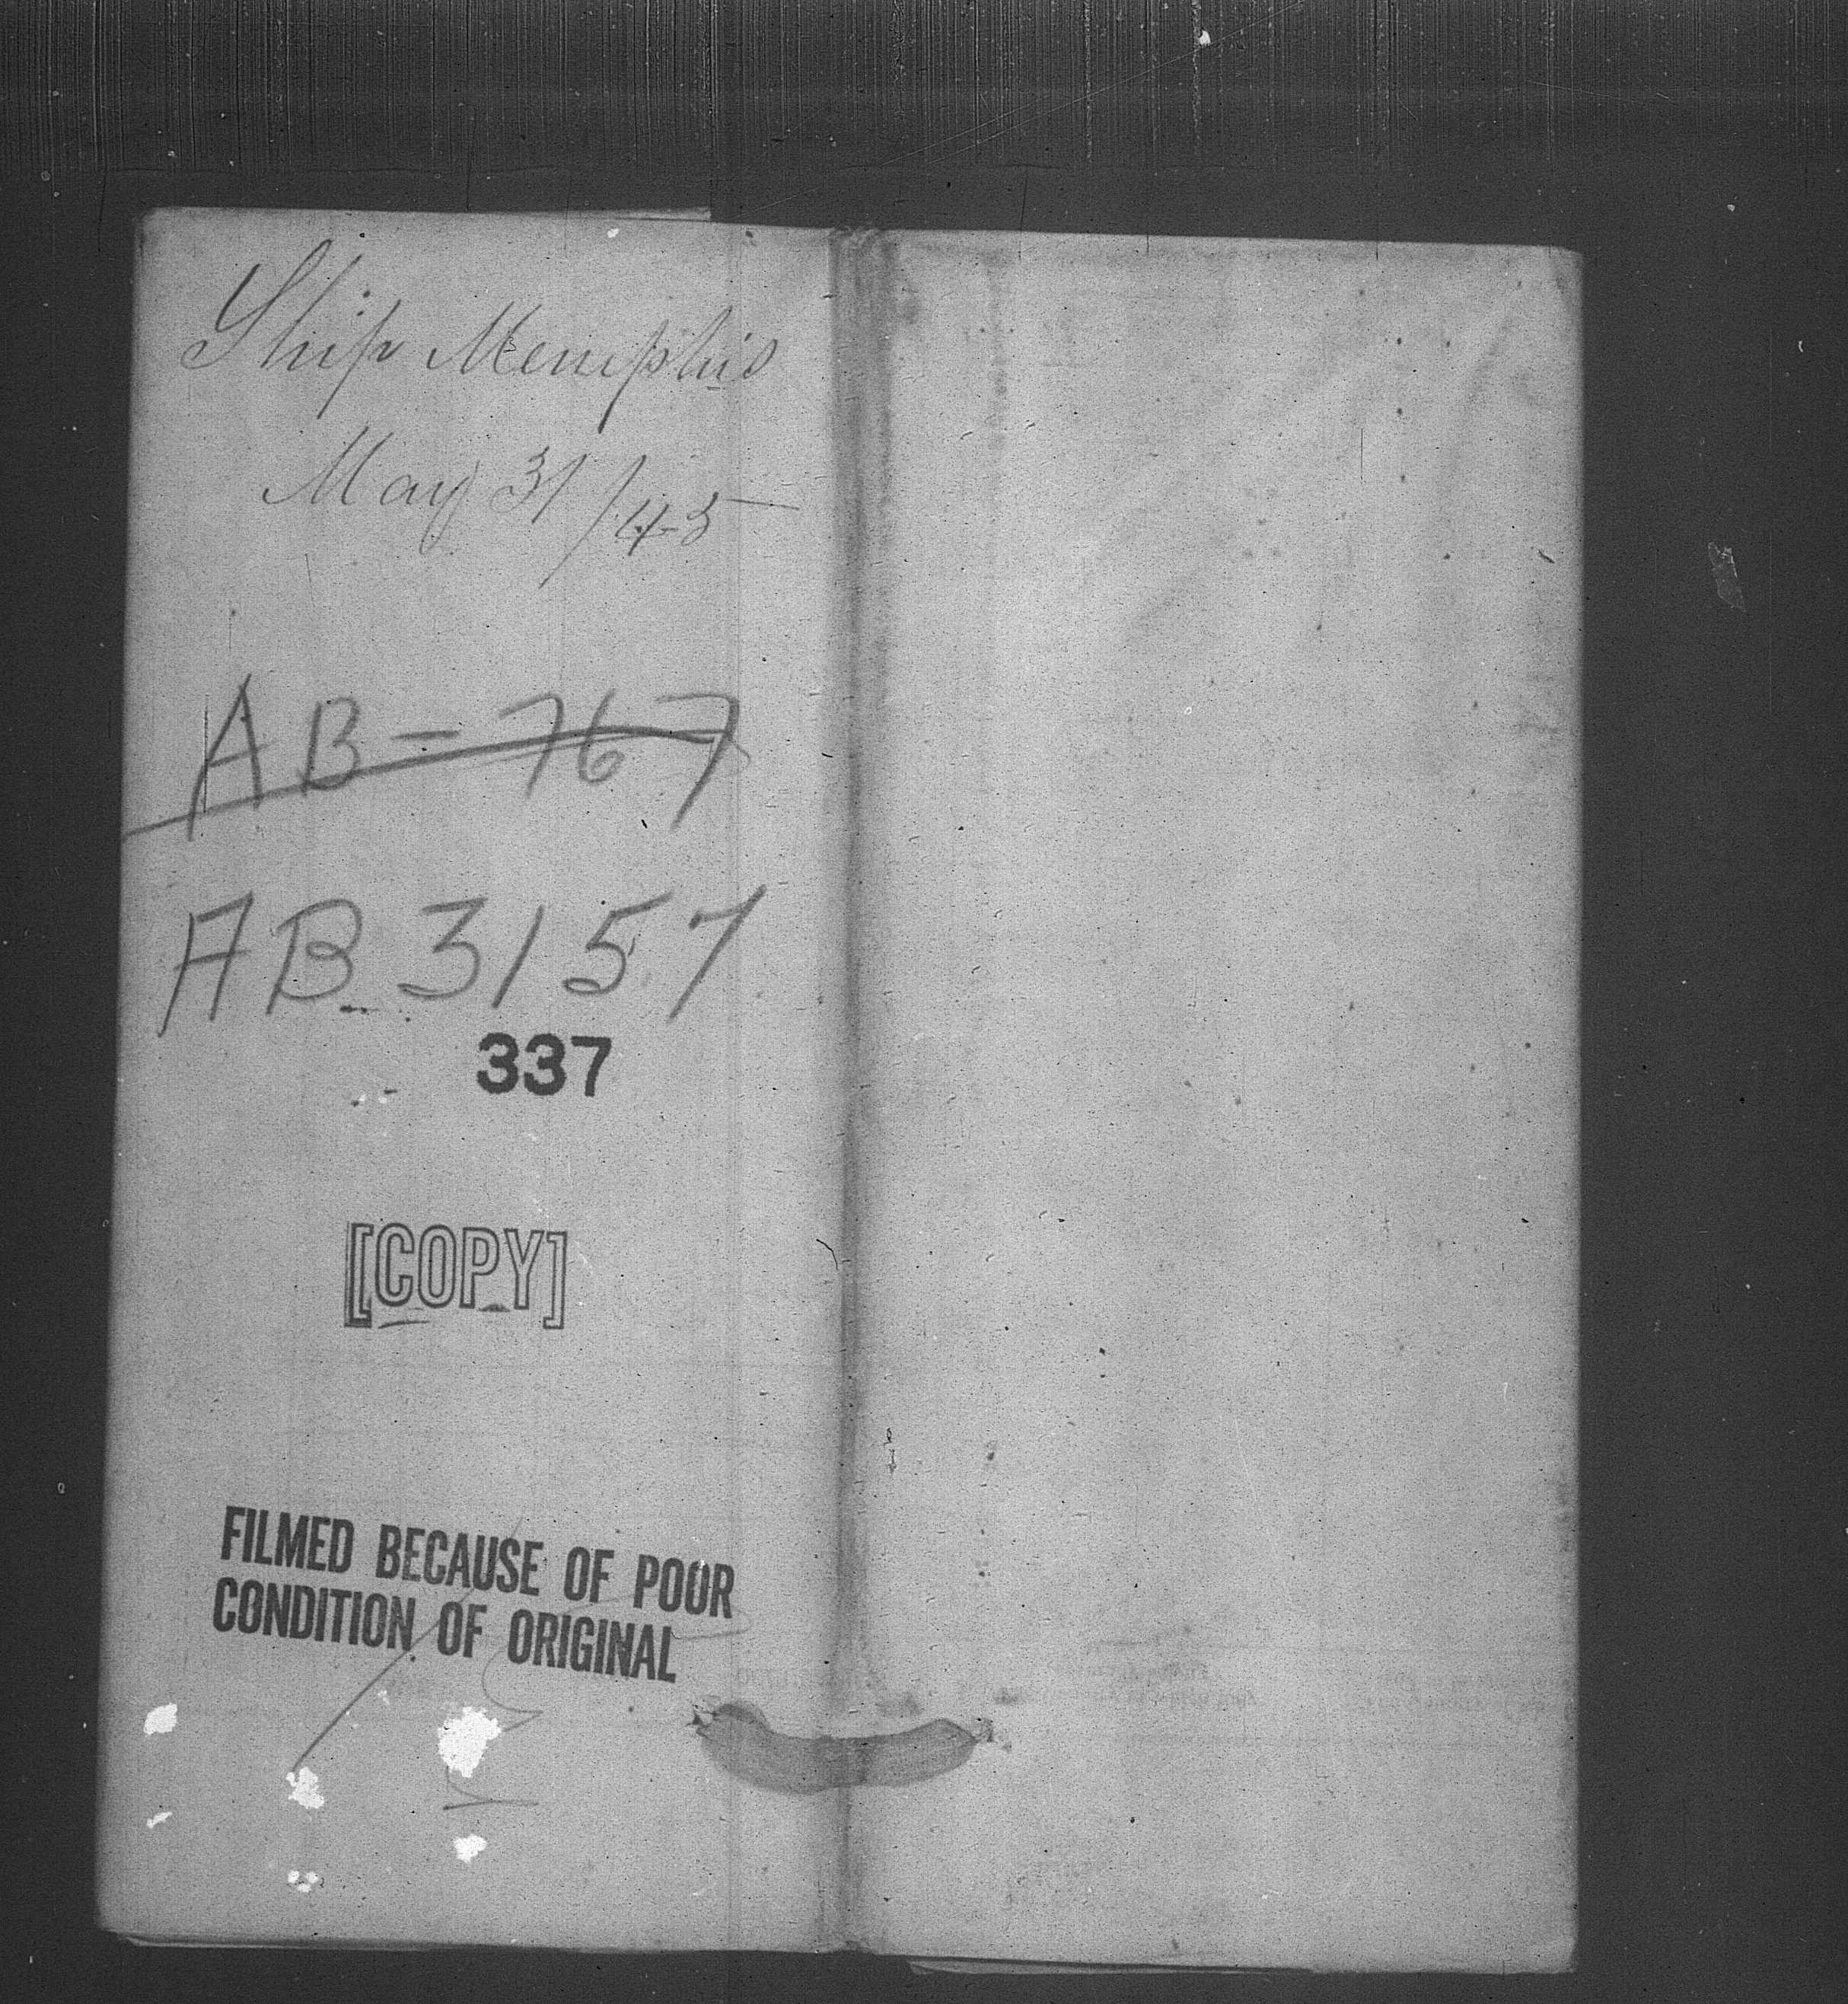 Ship Memphis
May 31/45
AB - 767
AB 3157
337
[COPY]
FILMED BECAUSE OF POOR
CONDITION OF ORIGINAL